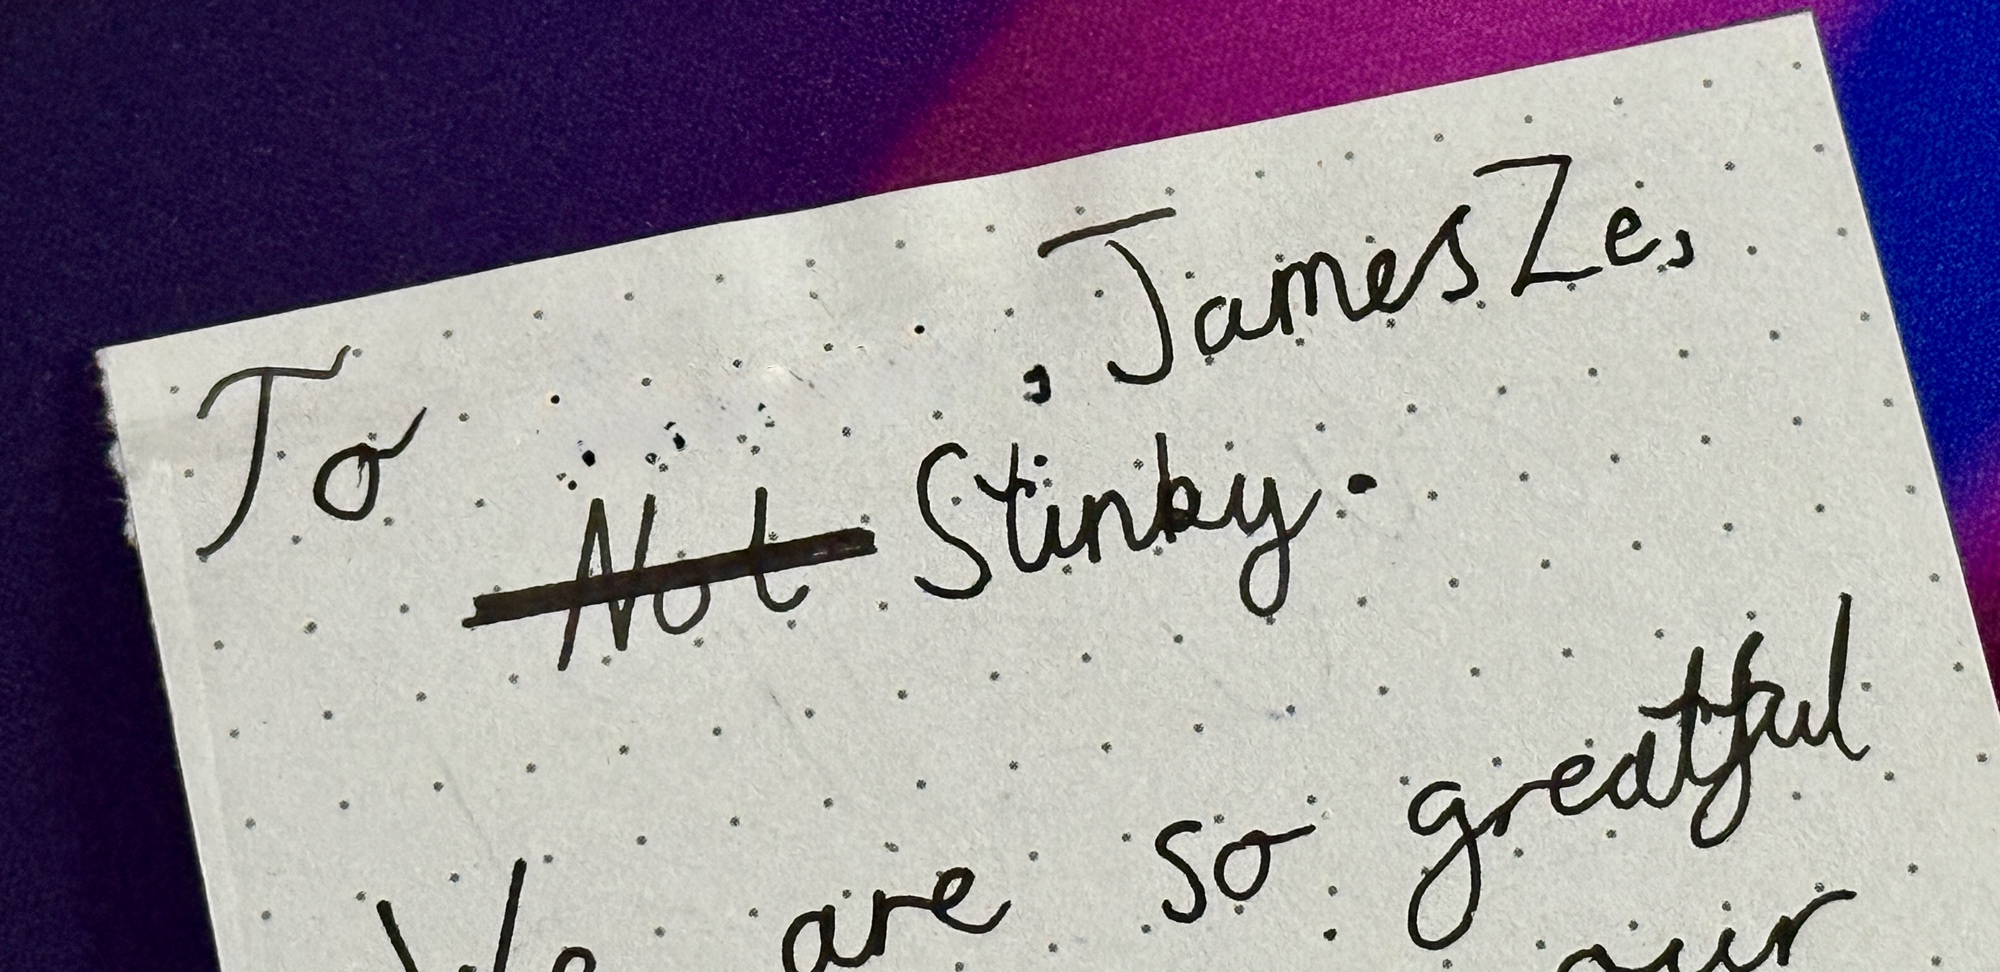 To , James Ze,
Not Stinky.
We are so greatful
our